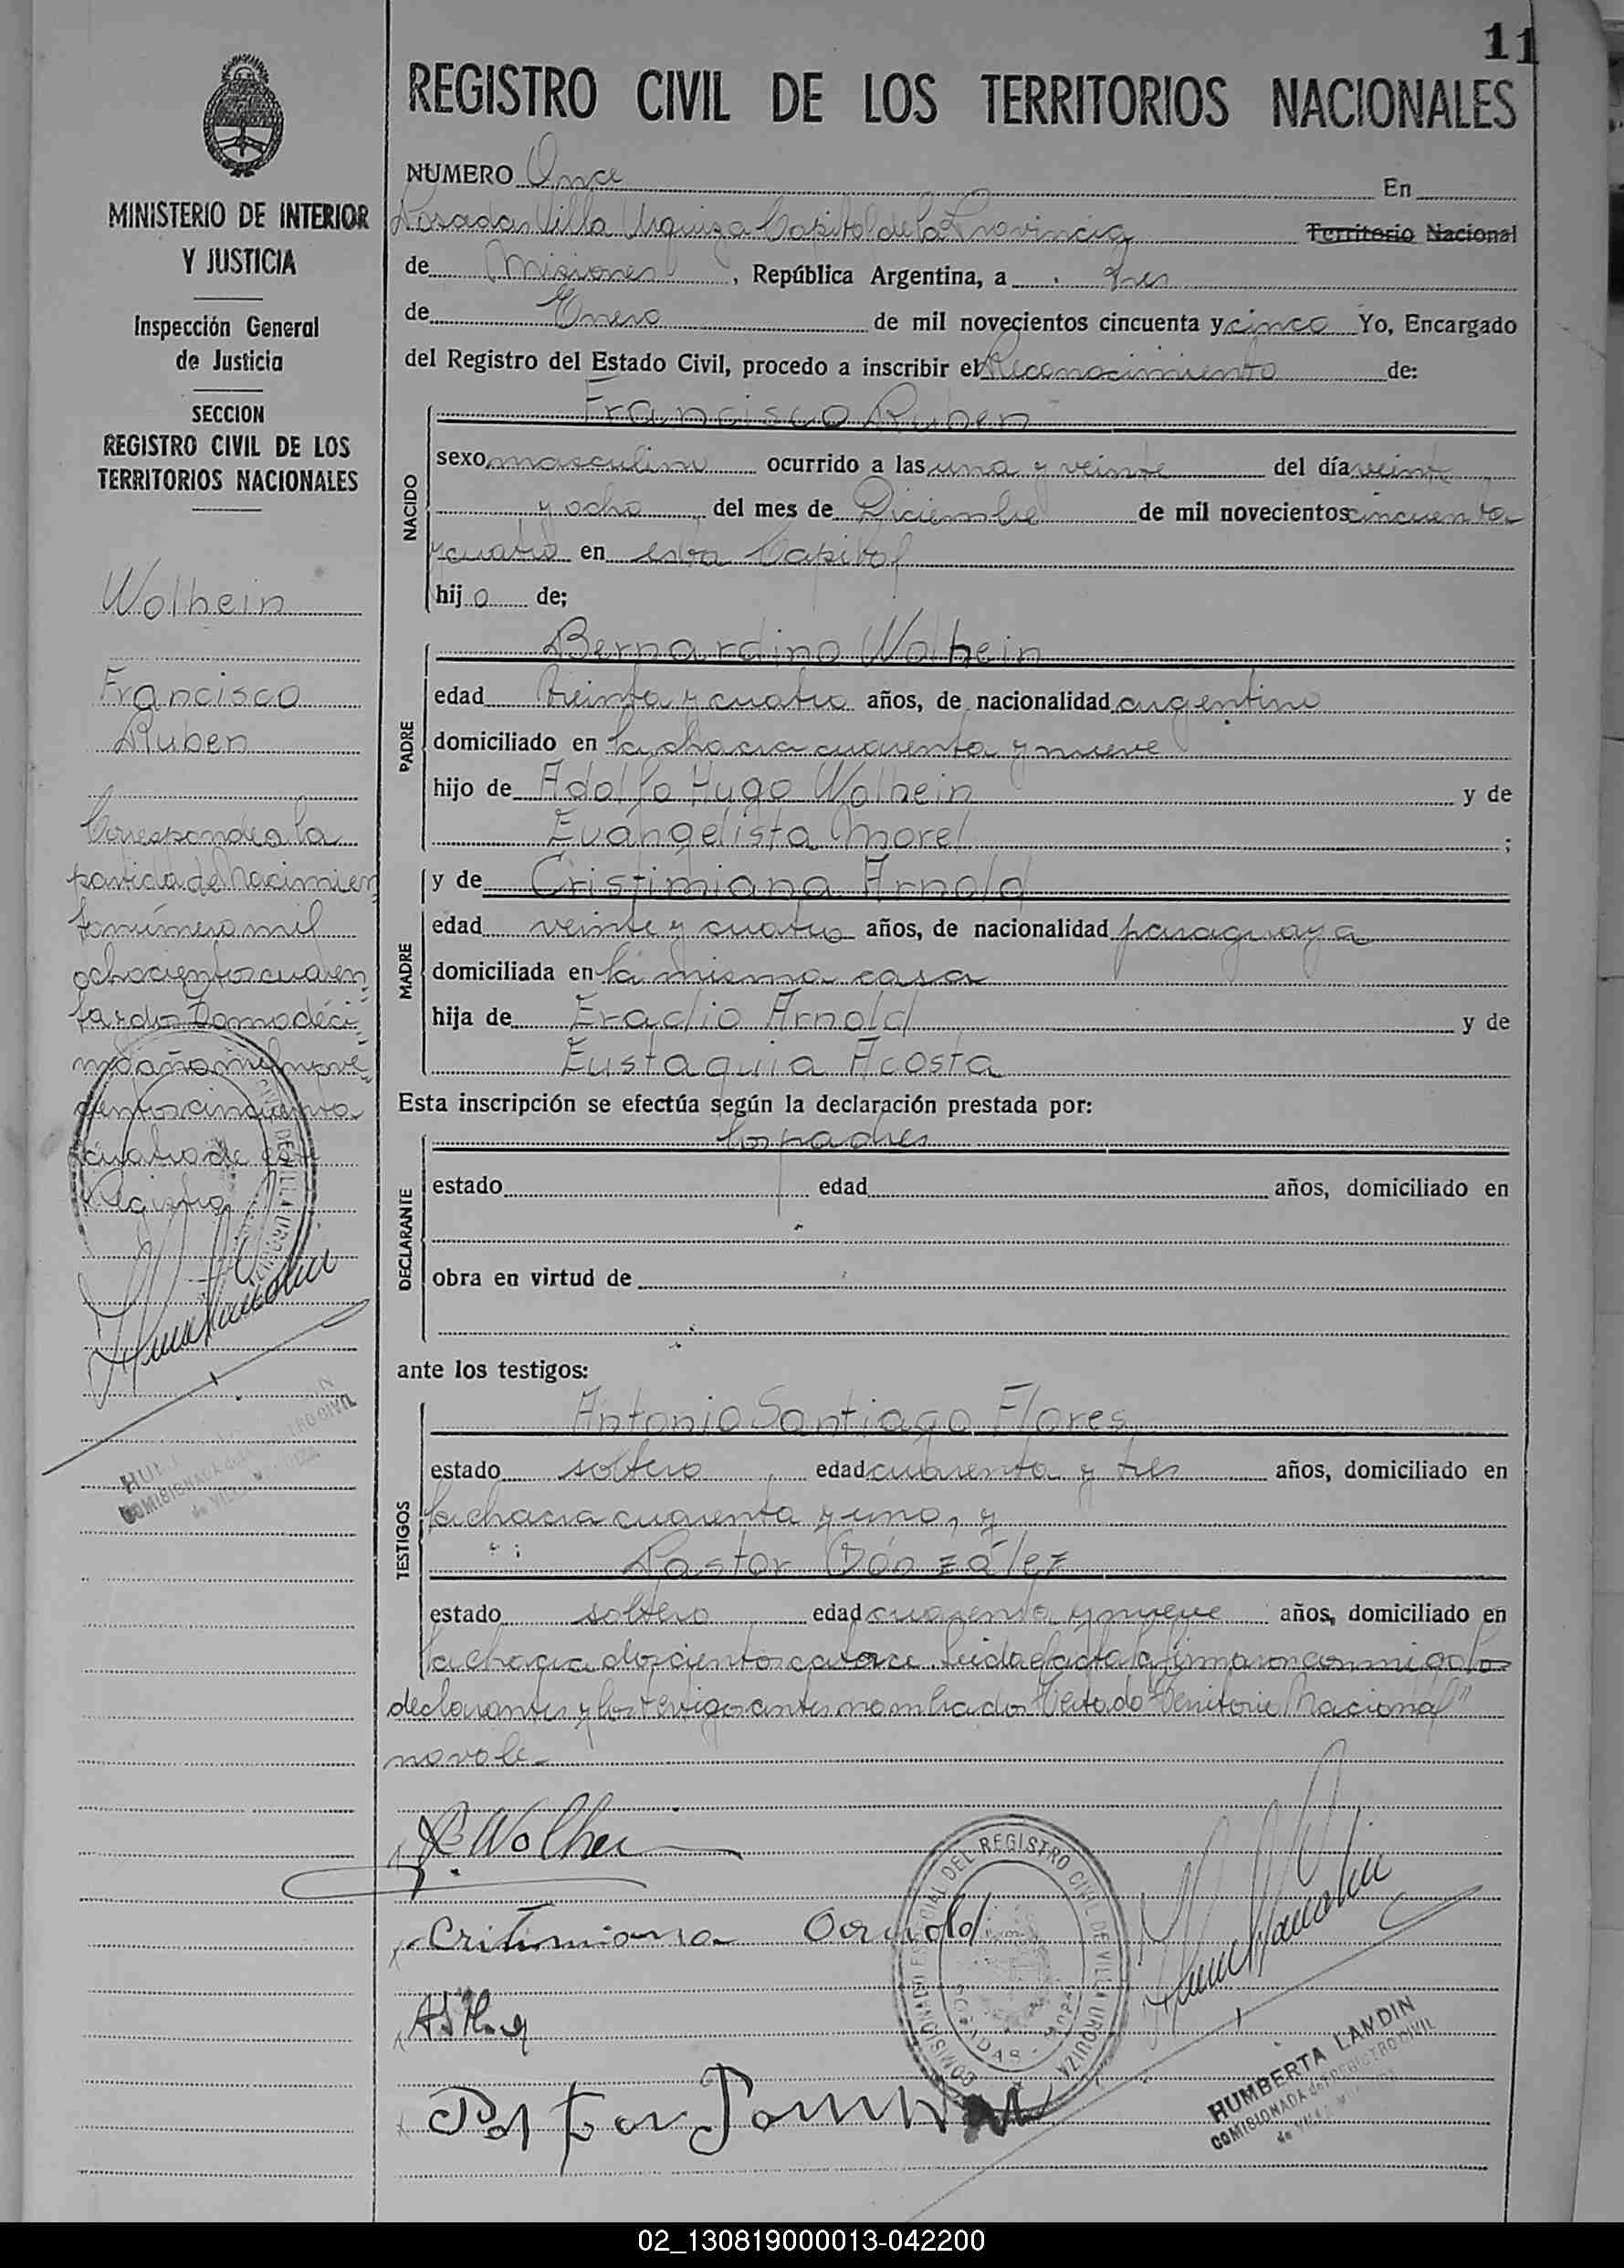 11
REGISTRO CIVIL DE LOS TERRITORIOS NACIONALES
NUMERO Once En
Posadas Villa Urquiza Capital de la Provincia Territorio Nacional
de Misiones, República Argentina, a tres
de Enero de mil novecientos cincuenta y cinco Yo, Encargado
del Registro del Estado Civil, procedo a inscribir el Reconocimiento de:
NACIDO
Francisco Ruben
sexo masculino ocurrido a las una y veinte del día veinte
y ocho del mes de Diciembre de mil novecientos cincuenta
y cuatro en esta Capital
hijo de;
PADRE
Bernardino Wolhein
edad treinta y cuatro años, de nacionalidad argentino
domiciliado en la chacra cuarenta y nueve
hijo de Adolfo Hugo Wolhein y de
Evangelista Morel ;
y de Cristimiana Arnold
MADRE
edad veinte y cuatro años, de nacionalidad paraguaya
domiciliada en la misma casa
hija de Eradio Arnold y de
Eustaquia Acosta
Esta inscripción se efectúa según la declaración prestada por:
DECLARANTE
los padres
estado edad años, domiciliado en
obra en virtud de
ante los testigos:
TESTIGOS
Antonio Santiago Flores
estado soltero, edad cuarenta y tres años, domiciliado en
la chacra cuarenta y uno, y
Pastor González
estado soltero edad cuarenta y nueve años, domiciliado en
la chacra doscientos catorce. Leida el acta la firmaron conmigo los
declarantes y los testigos antes nombrados Testado "Territorio Nacional"
no vale-
B. Wolhei
Critimiana Oarnold
Pastor
COMISIONADO ESPECIAL DEL REGISTRO CIVIL DE VILLA URQUIZA
POSADAS
HUMBERTA LANDIN
COMISIONADA del REGISTRO CIVIL
de VILLA
MINISTERIO DE INTERIOR
Y JUSTICIA
Inspección General
de Justicia
SECCION
REGISTRO CIVIL DE LOS
TERRITORIOS NACIONALES
Wolhein
Francisco
Ruben
Corresponde a la
partida de Nacimien
to número mil
ochocientos cuaren
ta y dos Tomo déci
mo año mil nove
cientos cincuenta
y cuatro de este
Registro
COMISIONADA del REGISTRO CIVIL
de VILLA
02_130819000013-042200